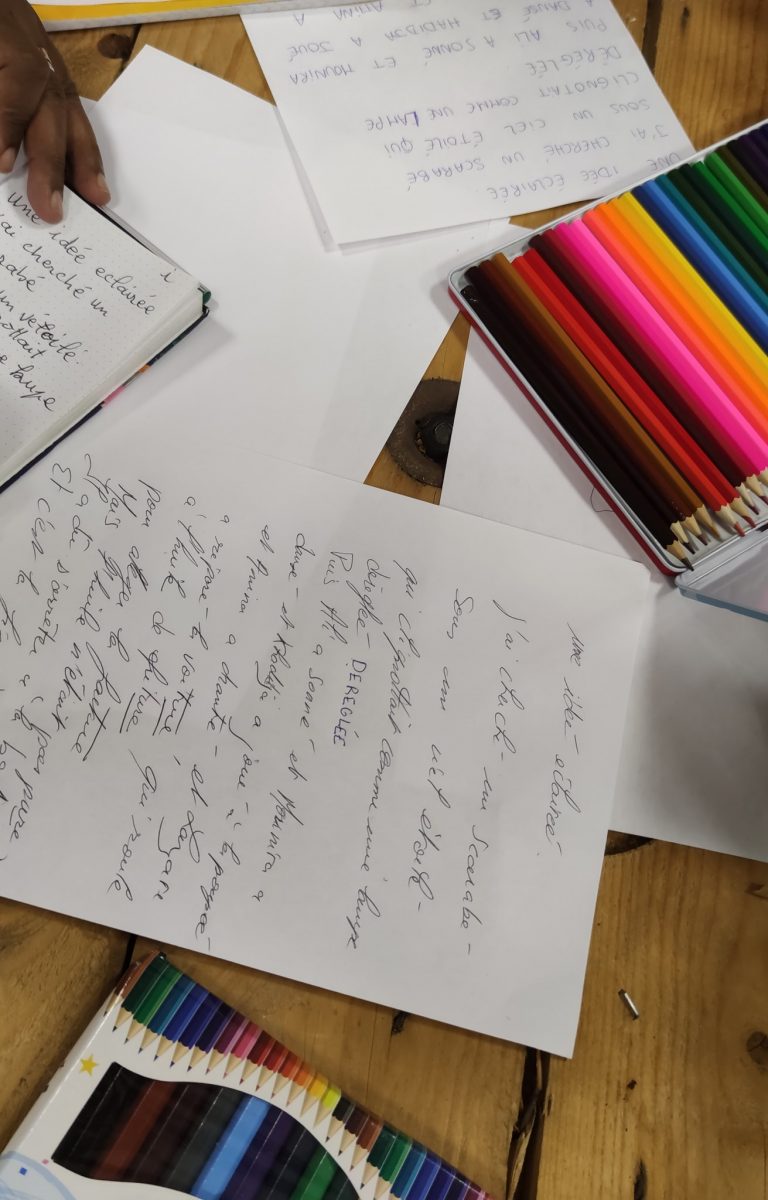 UNE
IDÉE ÉCLAIRÉE.
J'AI CHERCHÉ UN SCARABÉ
SOUS UN CIEL ÉTOILÉ QUI
CLIGNOTAIT COMME UNE LAMPE
DÉRÉGLÉE
PUIS ALI A SONNÉ ET MOUNIRA
A DANSÉ ET HADIDJA A JOUÉ
ET AMINA A
Une idée eclairée
j'ai cherché un
une idée éclairé.
J'ai cherch- un scarabe-
sous un ciel étoilé-
qui clignotait comme une lampe
déréglée- DEREGLÉE
Puis Ali a sonné- et Mounira a
danse- et Khadija a joué- à la poupée-
et Amina a chanté- et
a réparé- la voiture,
à l'huile de friture qui roule
pour la facture
Mais l'huile n'était
pas pure,
a dû s'arrêter à la
Et c'est la